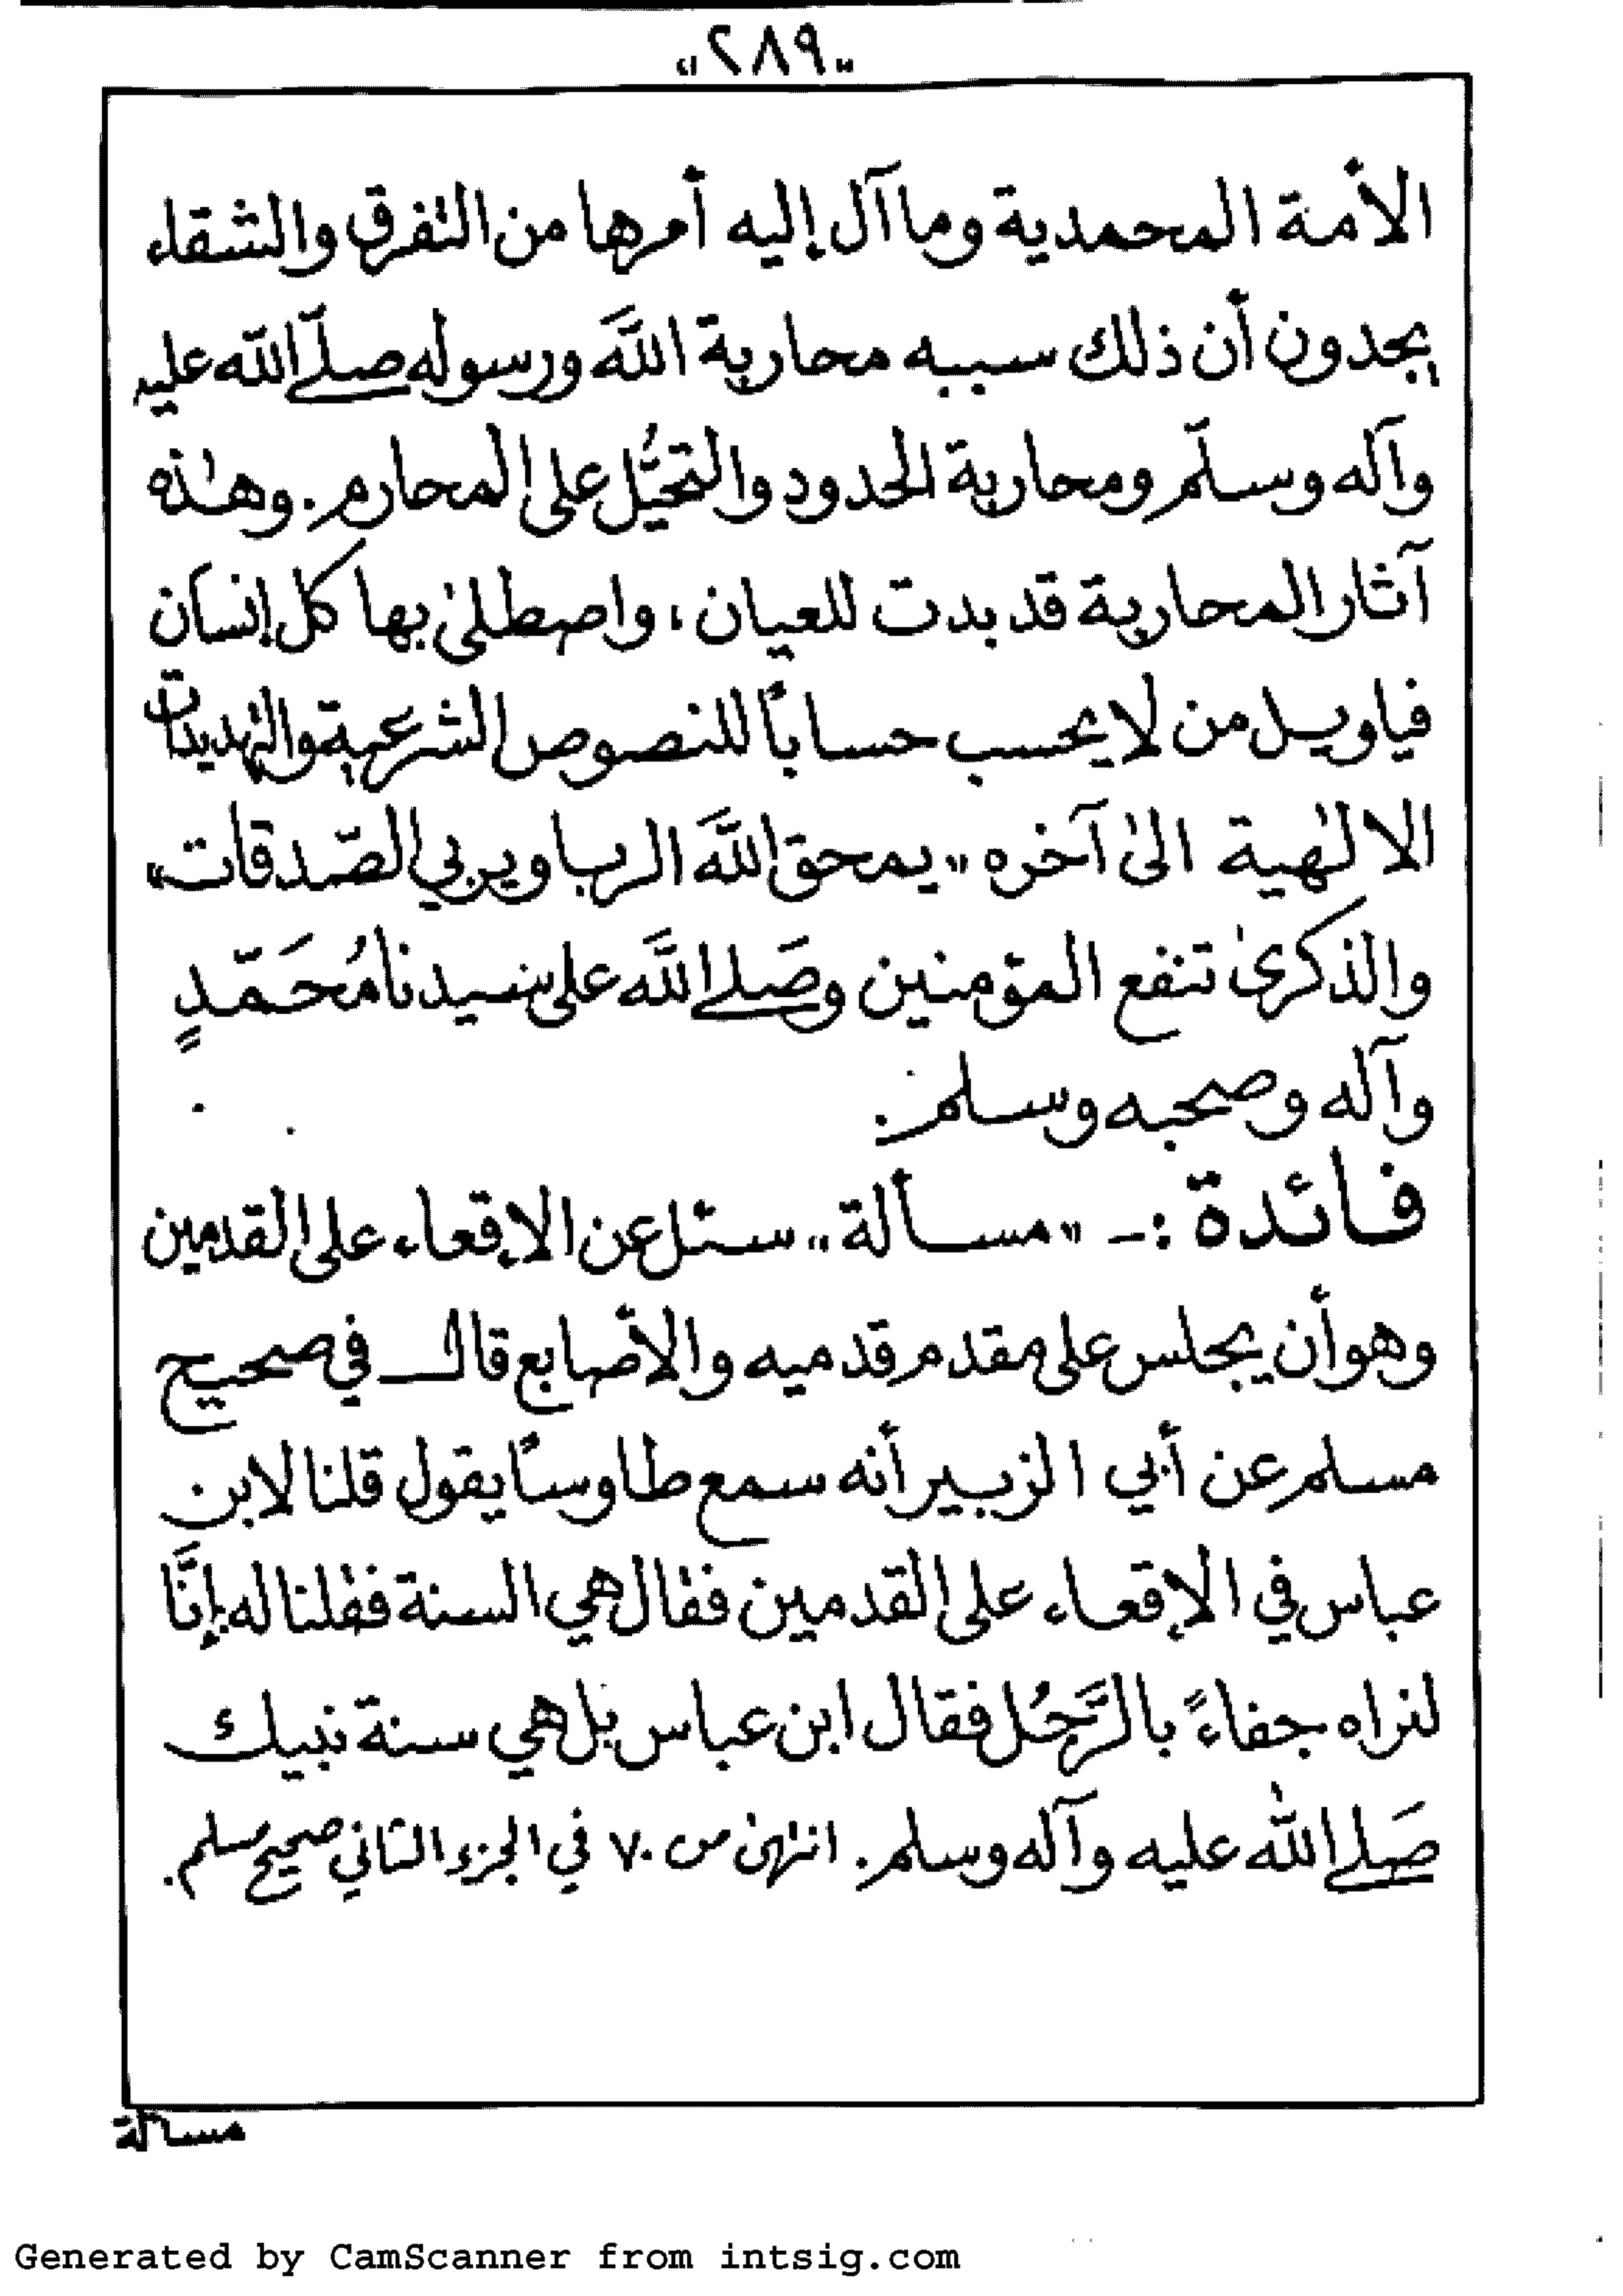 "٢٨٩"
الأمة المحمدية وما آل إليه أمرها من التفرق والشقاء
يجدون أن ذلك سببه محاربة اللَّه ورسوله صلّى الله عليه
وآله وسلّم ومحاربة الحدود والتحيُّل على المحارم. وهٰذه
آثار المحاربة قد بدت للعيان، واصطلىٰ بها كل إنسان
فيا ويل من لا يحسب حسابًا للنصوص الشرعية والتهديدات
الالٰهية الىٰ آخره "يمحق اللَّه الربا ويربي الصّدقات"
والذكرىٰ تنفع المؤمنين وصَلى اللَّه على سيدنا مُحَمّدٍ
وآله وصحبه وسلم.
فائدة :- "مسألة" سئل عن الإقعاء على القدمين
وهو أن يجلس على مقدم قدميه والأصابع قال في صحيح
مسلم عن أبي الزبير أنه سمع طاوسًا يقول قلنا لابن
عباس في الإقعاء على القدمين فقال هي السنة فقلنا له إنَّا
لنراه جفاءً بالرَّجُل فقال ابن عباس بل هي سنة نبيك
صَلى الله عليه وآله وسلم. انتهىٰ من ٧٠ في الجزء الثاني صحيح مسلم.
مسألة
Generated by CamScanner from intsig.com